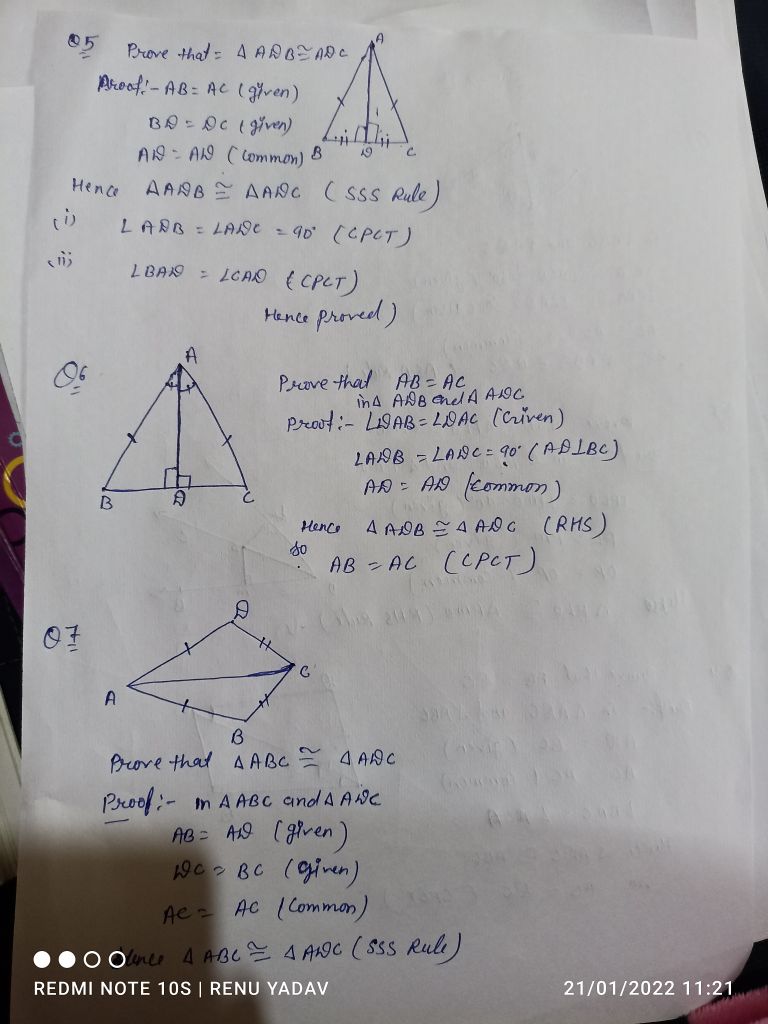 Q5 Prove that = Δ ADB ≅ ADC
Proof:- AB = AC (given)
BD = DC (given)
AD = AD (common)
A
B D C
Hence ΔADB ≅ ΔADC (SSS Rule)
(i) ∠ADB = ∠ADC = 90° (CPCT)
(ii) ∠BAD = ∠CAD (CPCT)
Hence proved)
Q6
A
B D C
Prove that AB = AC
in Δ ADB and Δ ADC
Proof:- ∠DAB = ∠DAC (Given)
∠ADB = ∠ADC = 90° (AD⊥BC)
AD = AD (common)
Hence Δ ADB ≅ Δ ADC (RHS)
so AB = AC (CPCT)
Q7
D
C
A
B
Prove that Δ ABC ≅ Δ ADC
Proof:- in Δ ABC and Δ ADC
AB = AD (given)
DC = BC (given)
AC = AC (Common)
Hence Δ ABC ≅ Δ ADC (SSS Rule)
REDMI NOTE 10S | RENU YADAV 21/01/2022 11:21